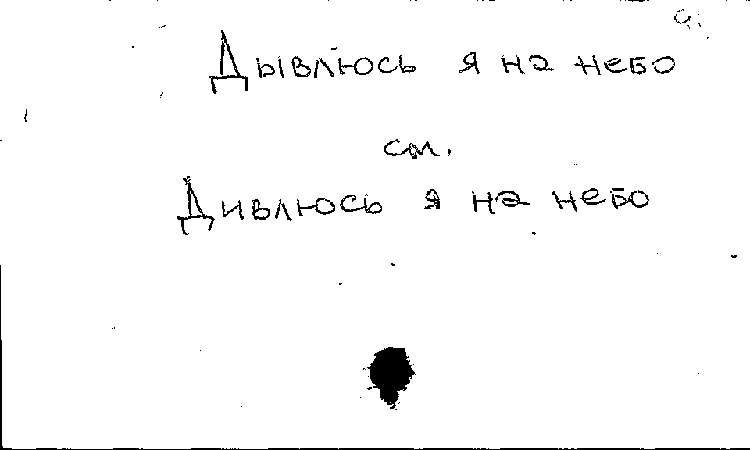 Дывлюсь я на небо
см.
Дивлюсь я на небо